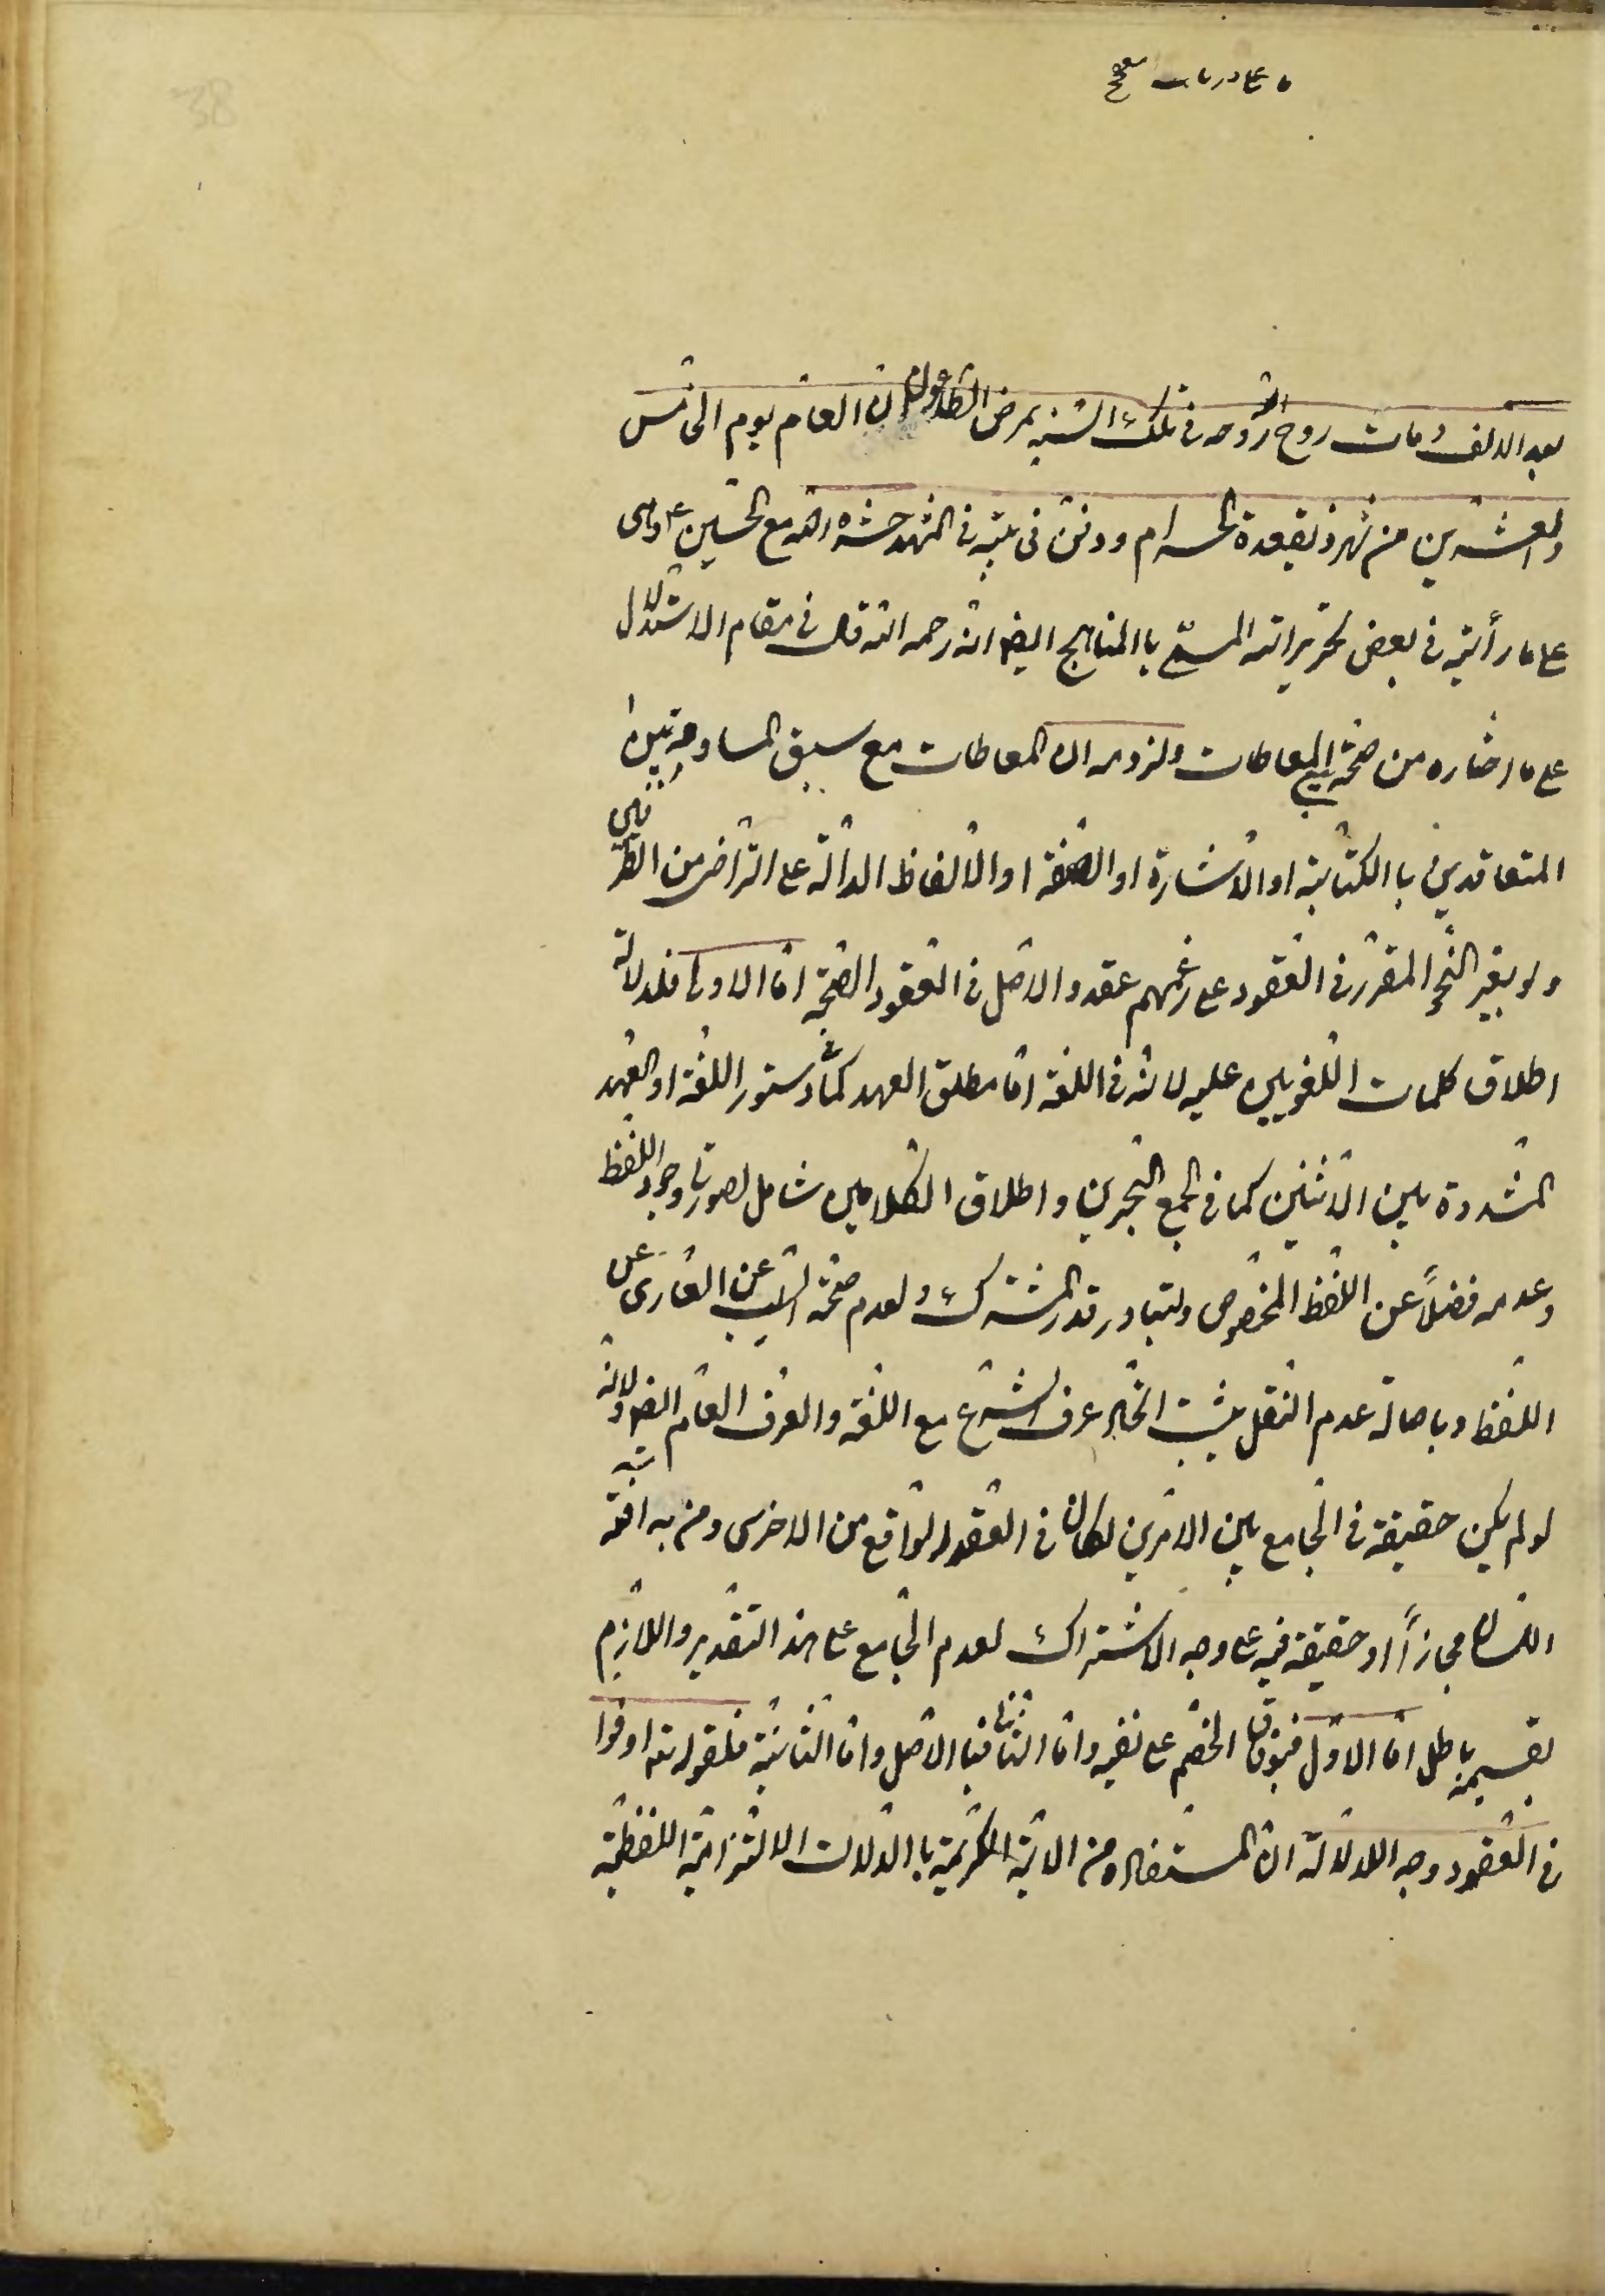 بعد الالف ومات روح الله روحه فى تلك السنه بمرض الطاعون العام يوم الخامس
والعشرين من شهر ذيقعدة الحرام ودفن فى بيته فى المشهد حشره الله مع الحسين ع
على ما رأيته فى بعض تحريراته المسمّى باالمناهج ايضا انه رحمه الله قال فى مقام الاستدلال
على ما اختاره من صحّة بيع المعاطات ولزومه ان المعاطات مع سبق المساومة بين
المتعاقدين باالكتابة او الاشارة او الصفقة او الالفاظ الدالّة على التراضى من الطرفين
ولو بغير النحو المقرر فى العقود على زعمهم عقد والاصل فى العقود الصّحة امّا الاولى فلدلالة
اطلاق كلمات اللغويين عليه لانه فى اللغة امّا مطلق العهد كما فى دستور اللغة او العهد
المشددة بين الاثنين كما فى مجمع البحرين واطلاق الكلامين شامل لصورتى وجود اللفظ
وعدمه فضلاً عن اللفظ المخصوص ولتبادر قدر المشترك ولعدم صحّة السلب عن العارى عن
اللفظ وباصالة عدم النقل يثبت اتحاد عرف الشرع مع اللغة والعرف العام ايضا ولانه
لو لم يكن حقيقة فى الجامع بين الامرين لكان فى العقود الواقع من الاخرس ومن به افة
اللسان مجازاً او حقيقة فيه على وجه الاشتراك لعدم الجامع على هذا التقدير واللازم
بقسميه باطل امّا الاول فبوفاق الخصم على نفيه وامّا الثانى فباالاصل وامّا الثانية فلقوله تع اوفوا
فى العقود وجه الدلالة ان المستفاد من الاية الكريمة باالدلالت الالتزامية اللفظية